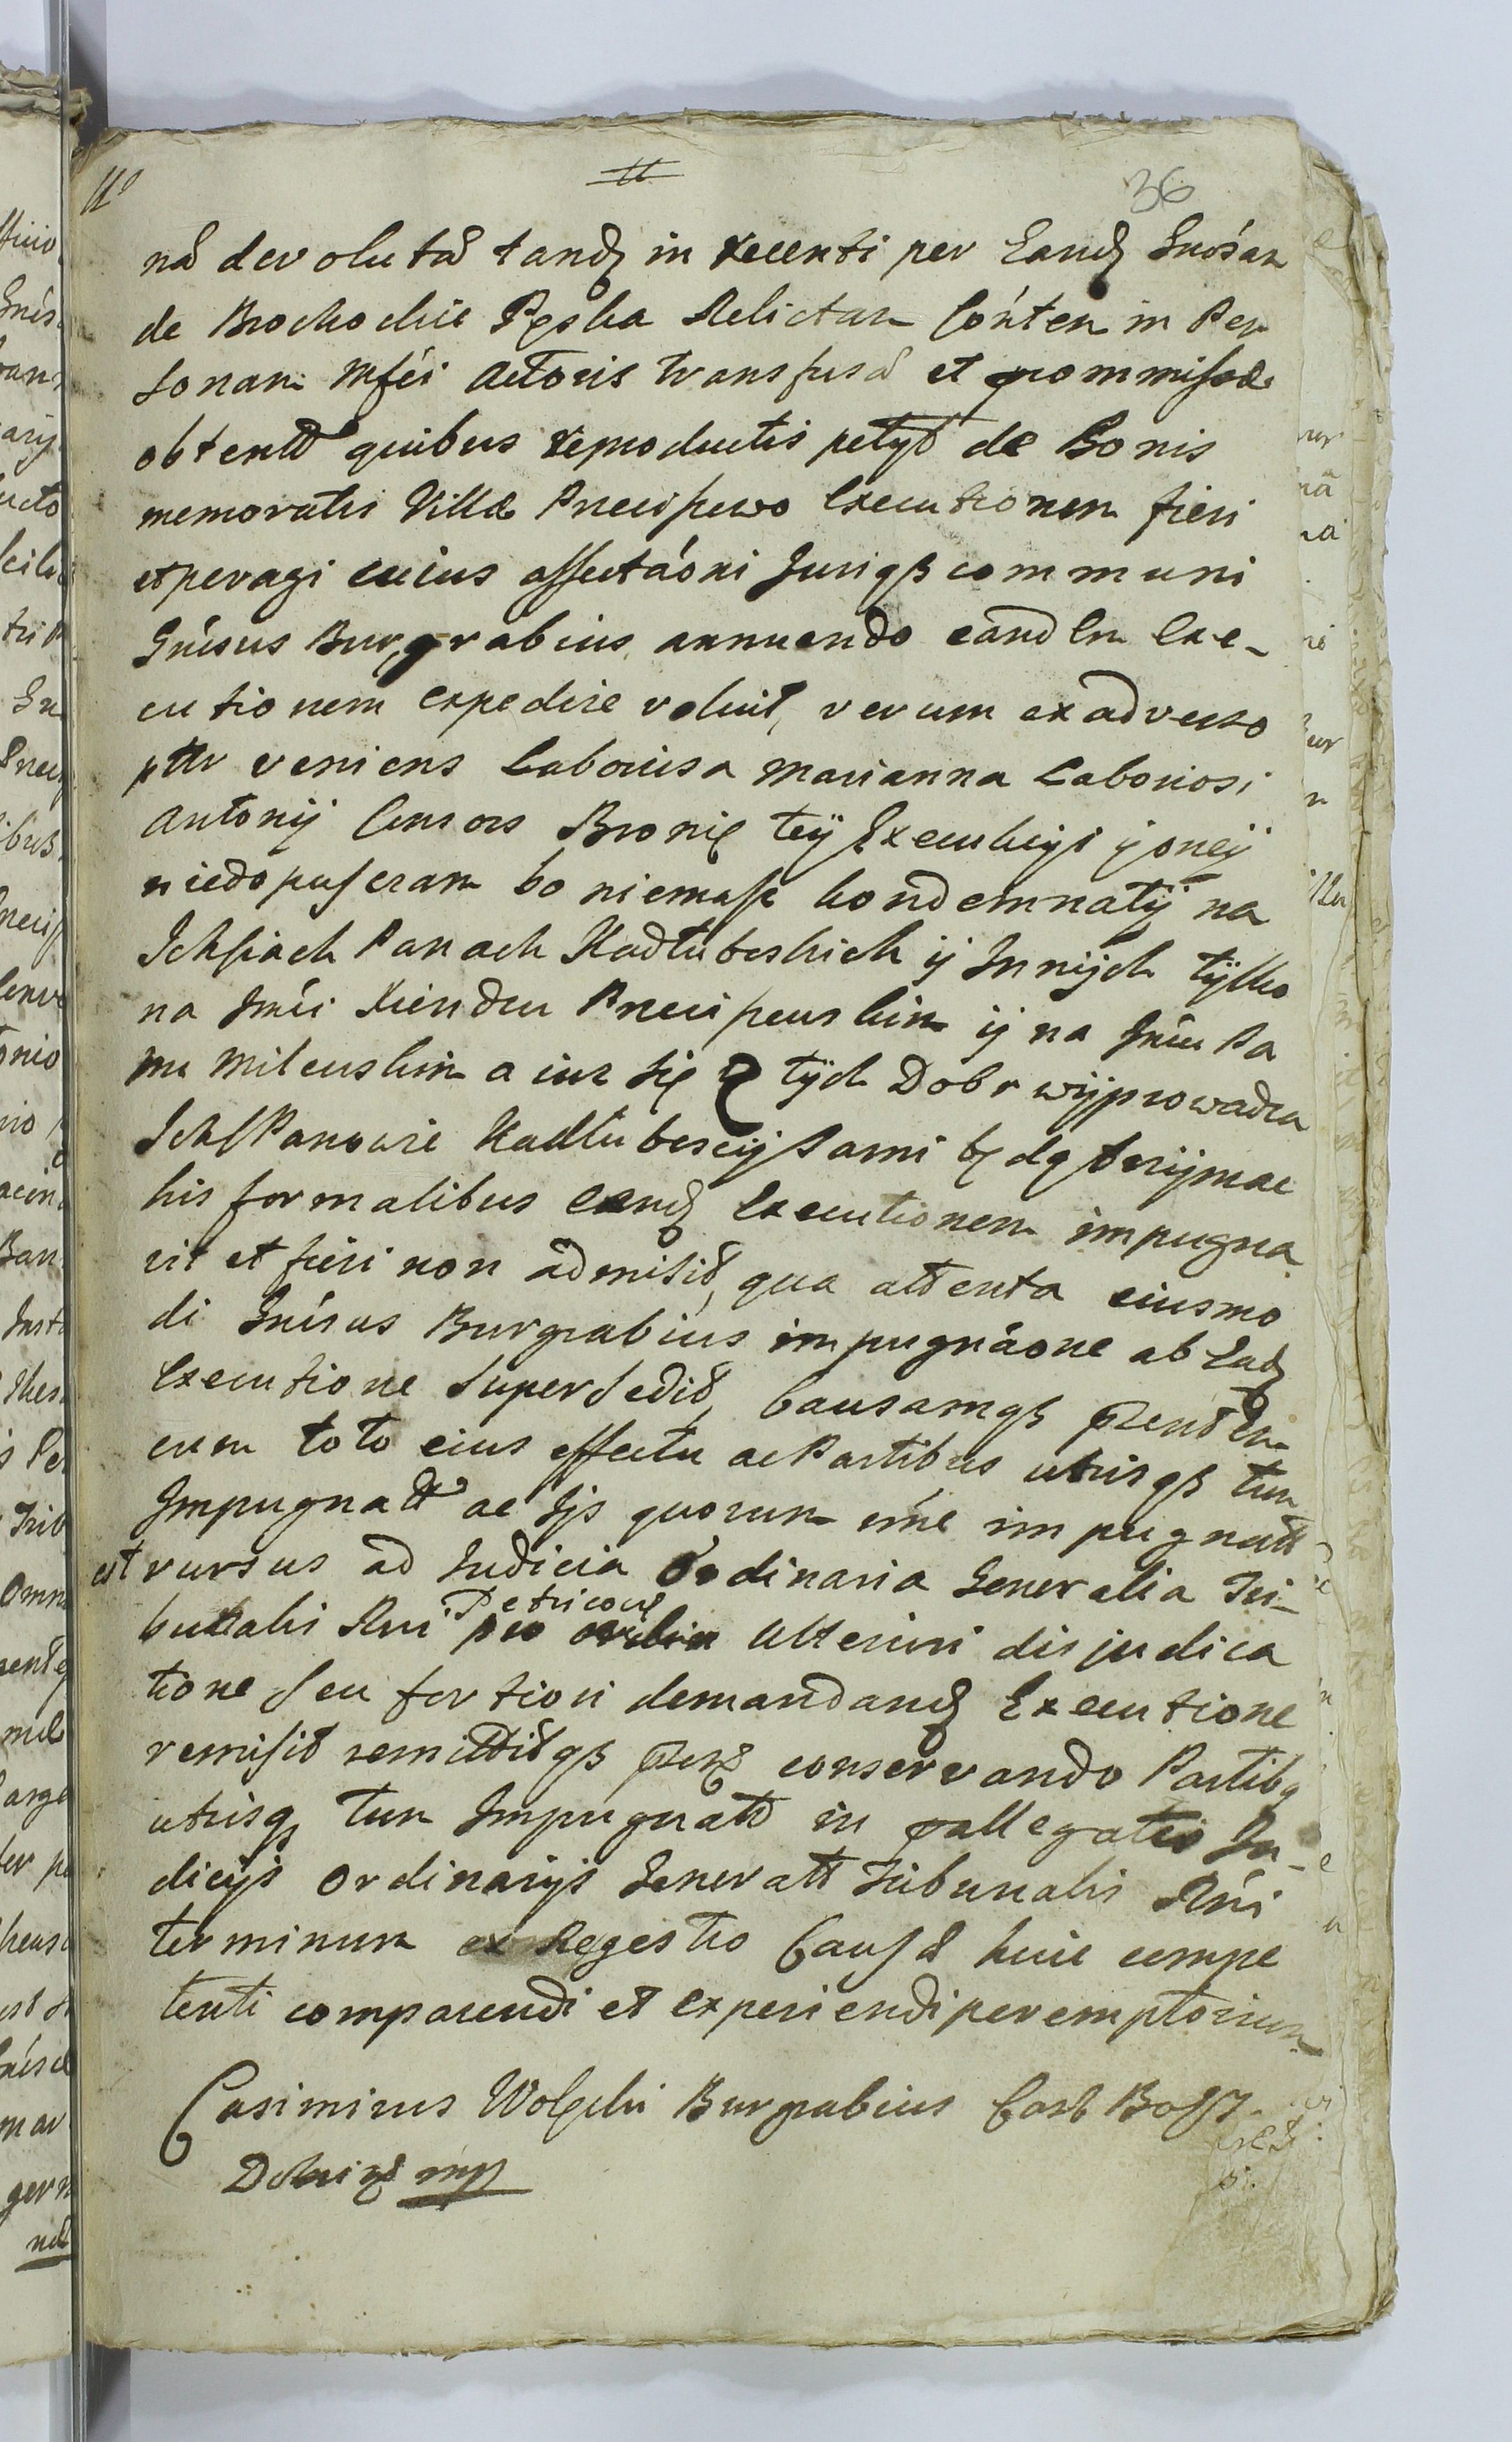 36
nã devolutã tandē in recenti per Eandē Gnósam
de Brochochie Pęska Relictam Cónten in Per
sonam Mfci Actoris transfusã et prommissæ
obtentã quibus reproductis petyt de Bonis
memoratis Villæ Pnecipewo Executionem fieri
et peragi cuius affectaóni Jurique communi
Gnúsus Burgrabius annuendo eandem Exe-
cutionem expedire voluit, verum ex adverso
pttr veniens Laboriosa Marianna Laboriosi
Antonij Consors Bronię teÿ Exekucÿi ÿ oneÿ
niedopuszczam bo niemasz kondemnatÿ na
Ichsciach Panach Kadłubskich ÿ Innÿch tÿlko
na Jmci Xiendzu Pnecipeuskim ÿ na Jmcu Pa
nu Mileuskim a iuz się z tÿch Dobr wÿprowadza
Ichs Panowie Kadłubscÿ sami będą trzÿmac
his formalibus eandē Executionem impugna
vit et fieri non admisit, qua attenta eiusmo
di Gnúsus Burgrabius impugnáone ab Eadē
Executione supersedit, Causamque pntem
cum toto eius effectu ac Partibus utrisque tum
Impugnatt ac Ijs quorum nine impugnatt
est rursus ad Judicia Ordinaria Generalia Tri-
bunalis Rni Petricoviē ulteriori disjudica
tione seu fortiori demandandē Executione
remisit remittitque pntē conservando Partibq
utrisq tum Impugnatt in pallegatis Ju-
dicijs Ordinarijs Generatt Tribunalis Rńi
terminum ex Regestro Causæ huic compe
tenti comparendi et experiendi peremptorium
Casimirus Wolski Burgrabius Cast
mp